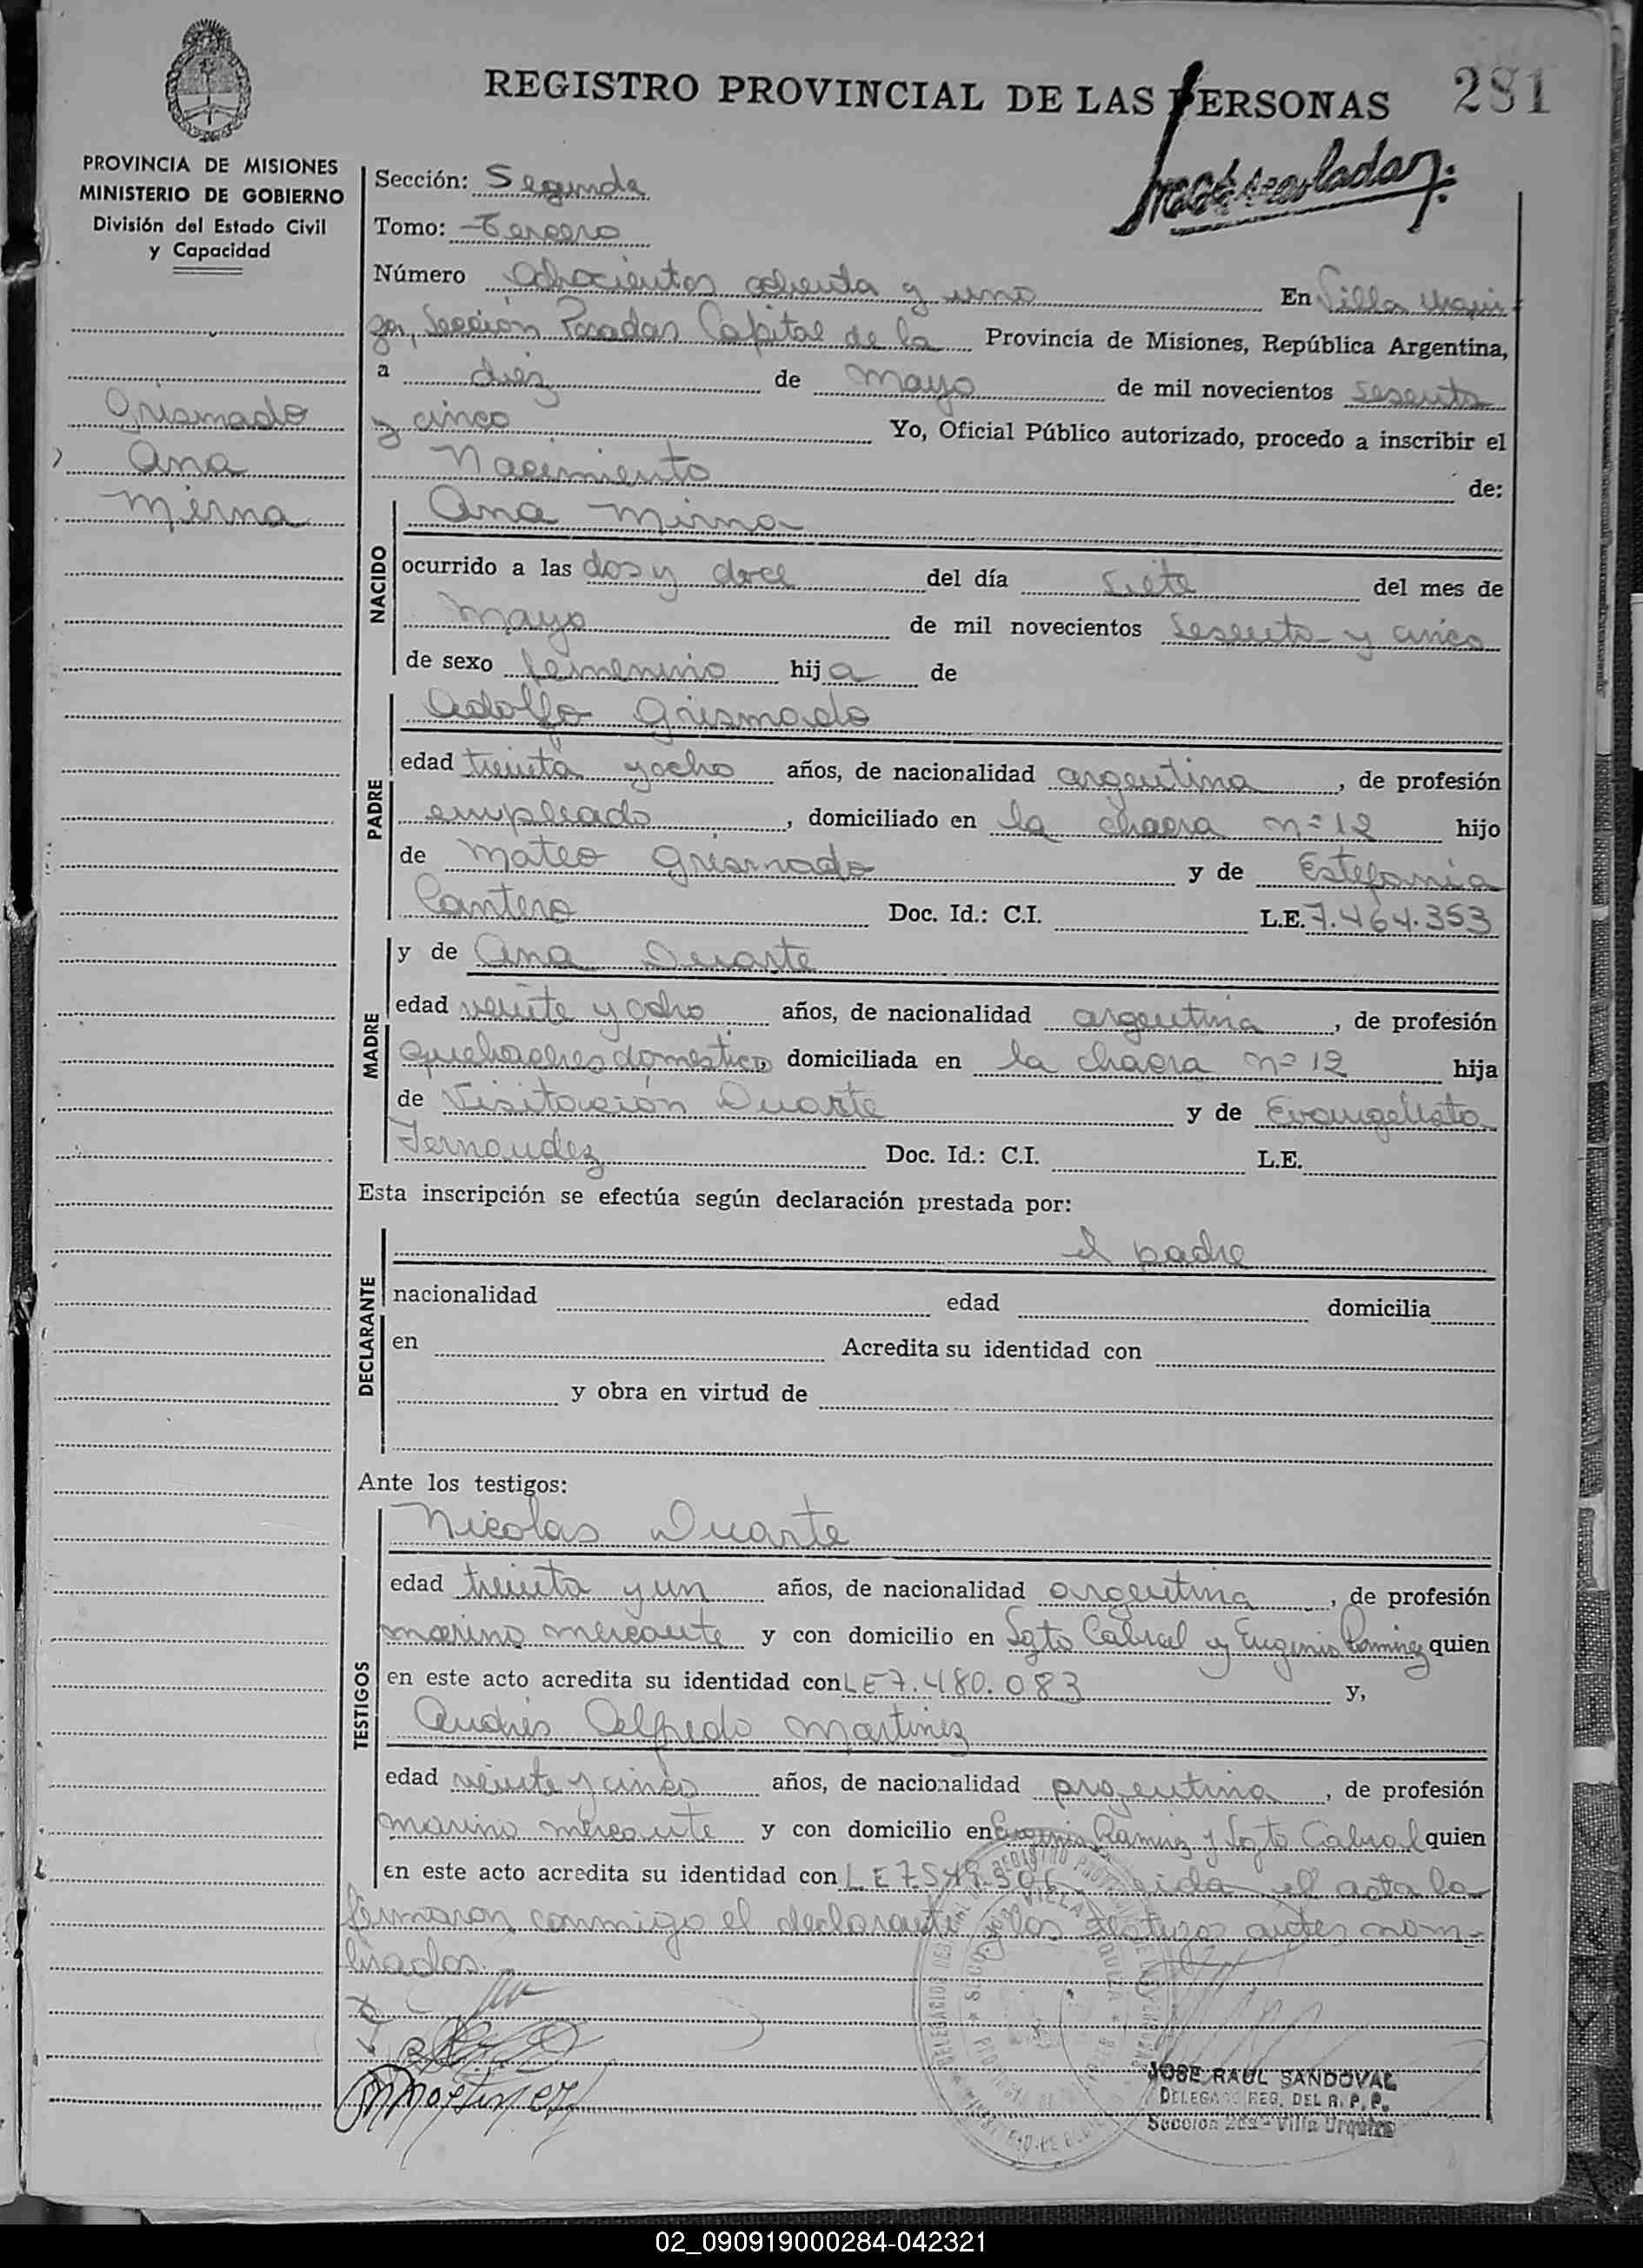 REGISTRO PROVINCIAL DE LAS PERSONAS 281
PROVINCIA DE MISIONES
MINISTERIO DE GOBIERNO
División del Estado Civil
y Capacidad
Grismado
Ana
Mirna
Sección: Segunda
Tomo: Tercero
Número doscientos ochenta y uno En Villa Urqui
za, Sección Posadas Capital de la Provincia de Misiones, República Argentina,
a diez de mayo de mil novecientos sesenta
y cinco Yo, Oficial Público autorizado, procedo a inscribir el
Nacimiento de:
NACIDO
Ana Mirna
ocurrido a las dos y doce del día siete del mes de
mayo de mil novecientos sesenta y cinco
de sexo femenino hija de
PADRE
Adolfo Grismado
edad treinta y ocho años, de nacionalidad argentina, de profesión
empleado, domiciliado en la chacra nº 12 hijo
de Mateo Grismado y de Estefania
Cantero Doc. Id.: C.I. L.E. 7.464.353
MADRE
y de Ana Duarte
edad veinte y ocho años, de nacionalidad argentina, de profesión
quehaceres domestico, domiciliada en la chacra nº 12 hija
de Visitación Duarte y de Evangelista
Fernandez Doc. Id.: C.I. L.E.
Esta inscripción se efectúa según declaración prestada por:
DECLARANTE
el padre
nacionalidad edad domicilia
en Acredita su identidad con
y obra en virtud de
Ante los testigos:
TESTIGOS
Nicolas Duarte
edad treinta y un años, de nacionalidad argentina, de profesión
marino mercante y con domicilio en Sgto Cabral y Eugenio Ramirez quien
en este acto acredita su identidad con LE 7.480.083 y,
Andrés Alfredo Martinez
edad veinte y cinco años, de nacionalidad argentina, de profesión
marino mercante y con domicilio en Eugenio Ramirez y Sgto Cabral quien
en este acto acredita su identidad con LE el acta la
firmaron conmigo el declarante los testigos antes nom-
brados.
Martinez
JOSE RAUL SANDOVAL
DELEGADO REG. DEL R. P. P.
Sección 2da - Villa Urquiza
02_090919000284-042321